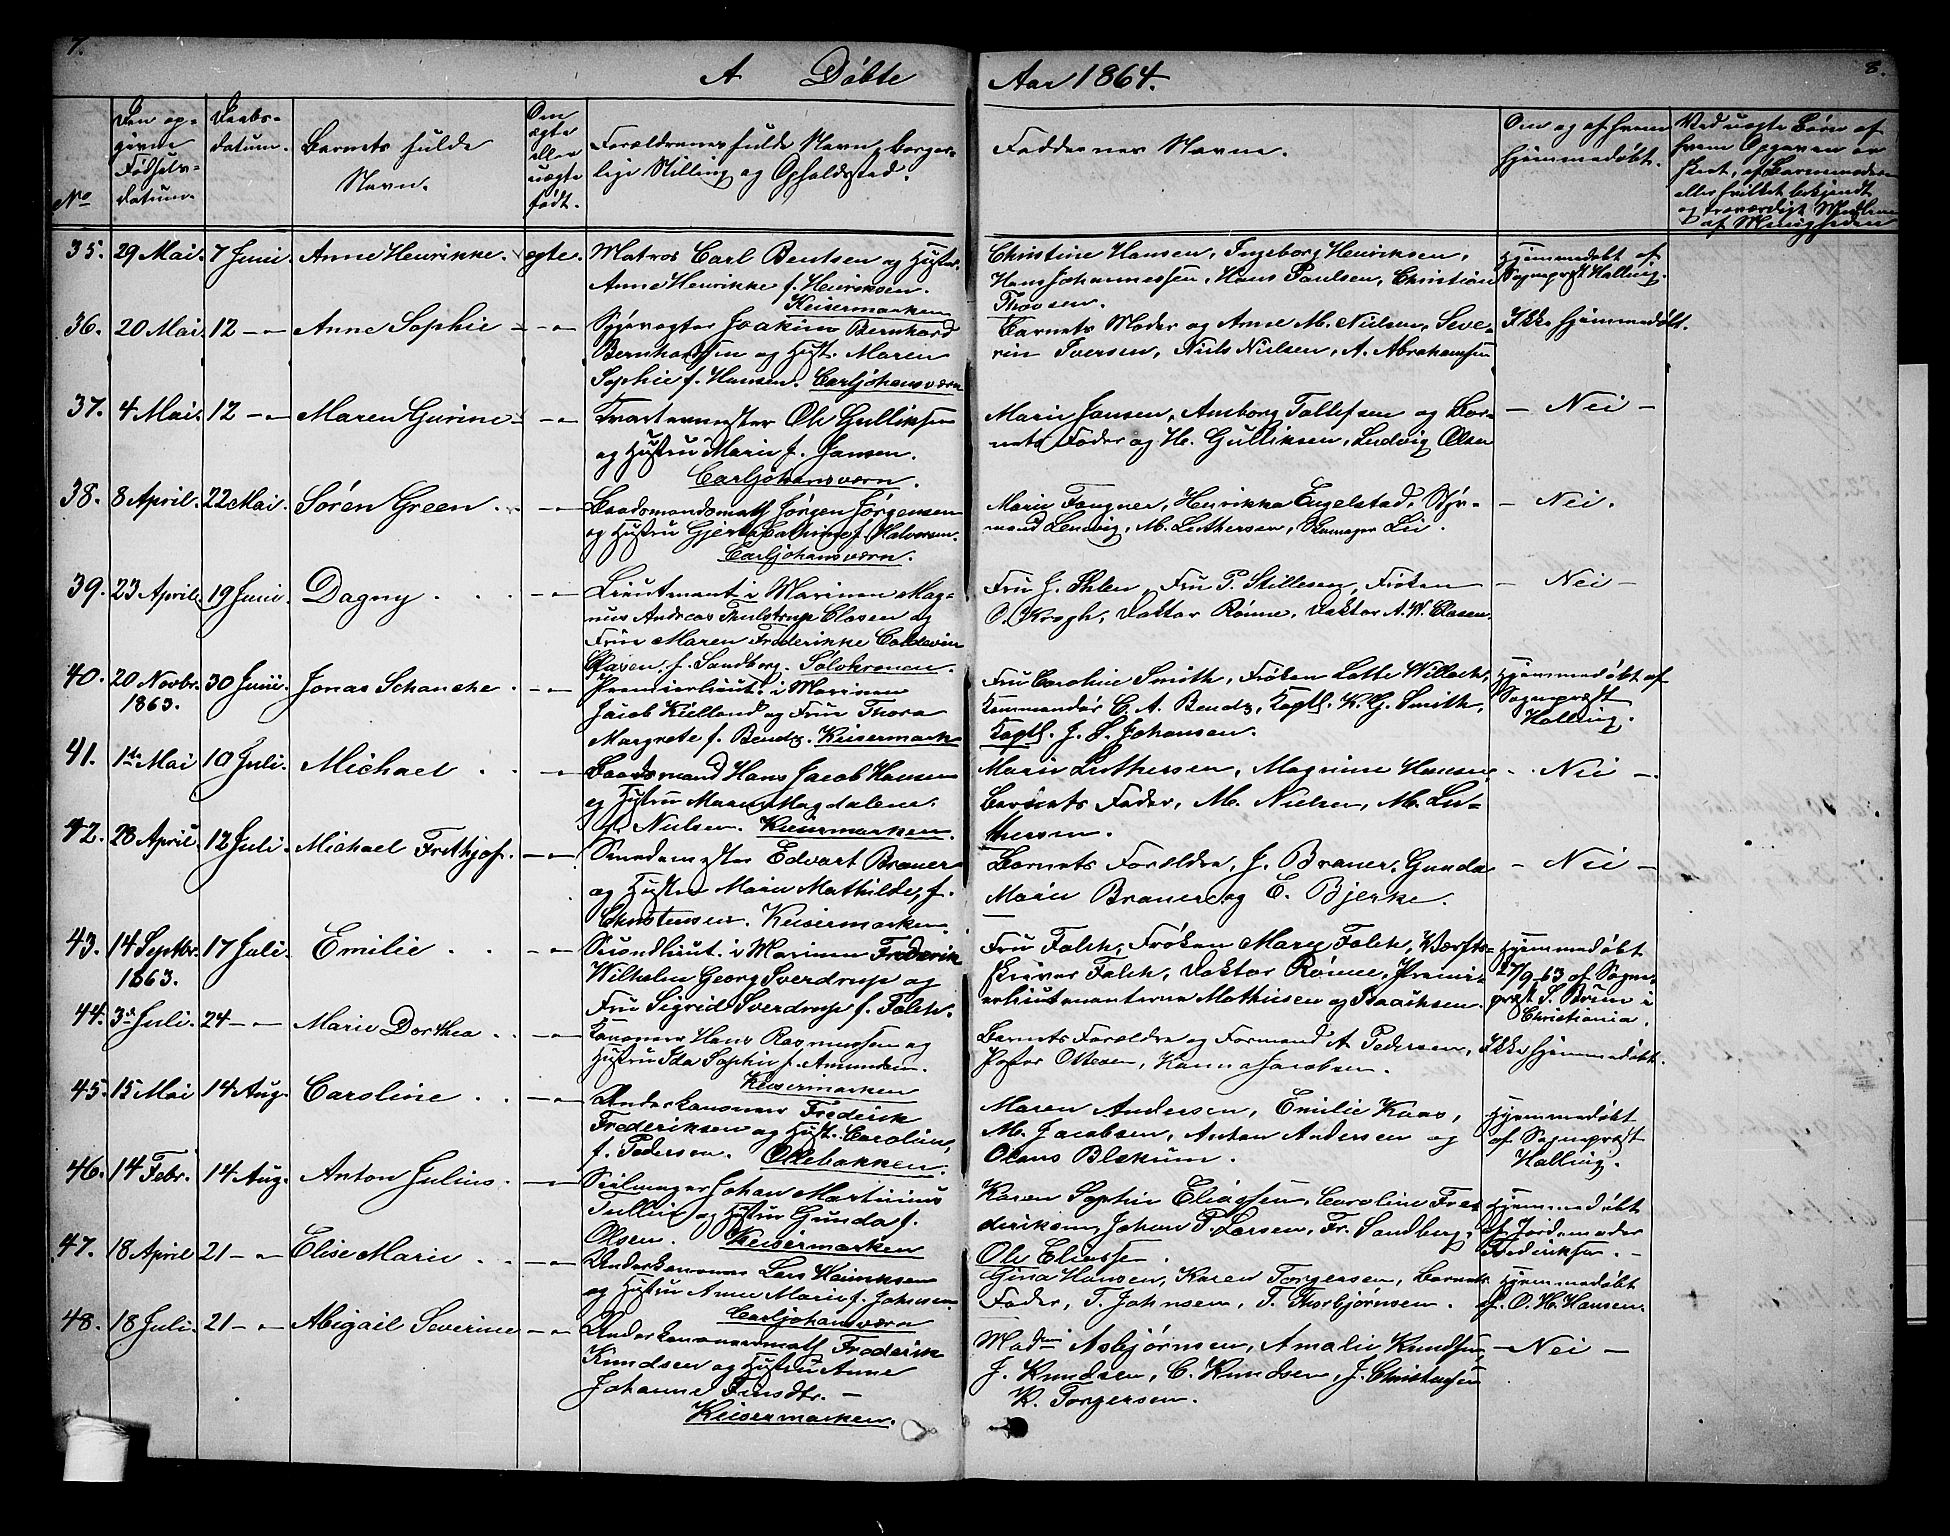 7.
A Döbte
Aar 1864.
8.
No
Den op-
givne
Födsels-
datum.
Daabs-
datum.
Barnets fulde
Navn.
Om
ægte
eller
uægte
födt.
Forældrenes fulde Navn, borger-
lige Stilling og Opholdssted.
Faddernes Navne.
Om og af hvem
hjemmedöbt.
Ved uægte Börn af
hvem Opgaven er
skeet, af Barnemoderen
eller hvilket bekjendt
og troværdigt Medlem
af Menigheden
35. 29 Mai. 7 Juni. Anne Henrikke. ægte.
Matros Carl Bentsen og Hustru
Anne Henrikke f. Henriksen.
Keisermarken
Christine Hansen, Ingeborg Henriksen,
Hans Johannessen, Hans Paulsen, Christian
Thorsen.
Hjemmedöbt af
Sognepræst Halling.
36. 20 Mai. 12 — " — Anne Sophie — " —
Sygevogter Joakim Bernhard
Bernhardsen og Hust. Maren
Sophie f. Hansen. Carljohansværn
Barnets Moder og Anne M. Nielsen, Seve-
rin Iversen, Niels Nielsen, A. Abrahamsen
Ikke hjemmedöbt.
37. 4 Mai. 12 — " — Maren Gurine — " —
Kvartermester Ole Gulliksen
og Hustru Marie f. Jansen.
Carljohansværn.
Marie Jansen, Amborg Tollefsen og Bar-
nets Fader og H. Gulliksen, Ludvig Olsen
— Nei —
38. 8 April. 22 Mai. Sören Green. — " —
Baadsmandsmath Jörgen Jörgensen
og Hustru Gjerta Catrine f. Halvorsen.
Carljohansværn.
Marie Fangner, Henrikka Engelstad, Styr-
mand Lendvig, M. Luthersen, Lie.
— Nei.
39. 23 April. 19 Juni. Dagny. — " —
Lieutenant i Marinen Mag-
nus Andreas Thulstrup Clasen og
Frue Maren Frederikke
Clasen, f. Sandberg. Solokronen.
Fru J. Ihlen, Fru P. Stillesen, Fröken
O. Krogh, Doktor Rönne, Doktor A. W. Clasen.
— Nei —
40. 20 Novbr. 1863. 30 Juni. Jonas Schanche. — " —
Premierlieut. i Marinen
Jacob Kielland og Frue Thora
Margrete f. Bendz. Keisermark
Fru Caroline Smith, Fröken Lotte Willoch,
Kommandör C. A. Bendz, Kaptl. K. G. Smith,
Kaptl. J. S. Johansen.
Hjemmedöbt af
Sognepræst
Halling.
41. 1ste Mai 10 Juli. Michael. — " —
Baadsmand Hans Jacob Hansen
og Hustru Maren Magdalene
f. Nielsen. Keisermarken.
Marie Luthersen, Magrine Hansen,
Barnets Fader, M. Nielsen, M. Lu-
thersen.
— Nei —
42. 28 April 12 Juli. Michael Frithjof. — " —
Smedemester Edvart Braner
og Hustru Marie Mathilde, f.
Christensen. Keisermarken.
Barnets Forældre, J. Braner, Gunda
Marie Braner og E. Bjerke.
— Nei —
43. 14 Septbr. 1863. 17 Juli. Emilie. — " —
Secondlieut. i Marinen Frederik
Wilhelm Georg Sverdrup og
Fru Sigrid Sverdrup f. Falch.
Fru Falch, Fröken Mary Falch, Værfts-
skriver Falch, Doktor Rönne, Premi-
erlieutenanterne Mathiesen og Isaachsen.
Hjemmedöbt
27/9 63 af Sogne-
præst S. Brun i
Christiania.
44. 3die Juli. 24 — " — Marie Dorthea. — " —
Kanoneer Hans Rasmussen og
Hustru Ida Sophie f. Amundsen.
Keisermarken
Barnets Forældre og Formand A. Pedersen,
Peter Ottosen, Hanna Jacobsen.
Ikke hjemmedöbt.
45. 15 Mai 14 Aug. Caroline. — " —
Underkanoneer Frederik
Frederiksen og Hust. Caroline,
f. Pedersen. Ollebakken.
Maren Andersen, Emilie Kaas,
M. Jacobsen, Anton Andersen og
Olaus Blekum.
Hjemmedöbt
af Sognepræst
Halling.
46. 14 Febr. 14 Aug. Anton Julius. — " —
Seilmager Johan Martinius
Tullin og Hustru Gunda f.
Olsen. Keisermarken
Karen Sophie Eliassen, Caroline Fre-
deriksen, Johan P. Larsen, Fr. Sandberg,
Ole Eliassen.
Hjemmedöbt
af Jordemoder
Frederiksen.
47. 18 April 21 — " — Elise Marie. — " —
Underkanoneer Lars Henriksen
og Hustru Anne Marie f. Johnsen
Carljohansværn
Gina Hansen, Karen Torgersen, Barnets
Fader, T. Johnsen, T. Thorbjörnsen.
Hjemmedöbt
af O. H. Hansen.
48. 18 Juli. 21 — " — Abigail Severine — " —
Underkanoneermath Frederik
Knudsen og Hustru Anne
Johanne Knudtr. —
Keisermarken.
Madm Asbjörnsen, Amalie Knudsen,
J. Knudsen, C. Knudsen, J. Christensen
K. Torgersen.
— Nei —